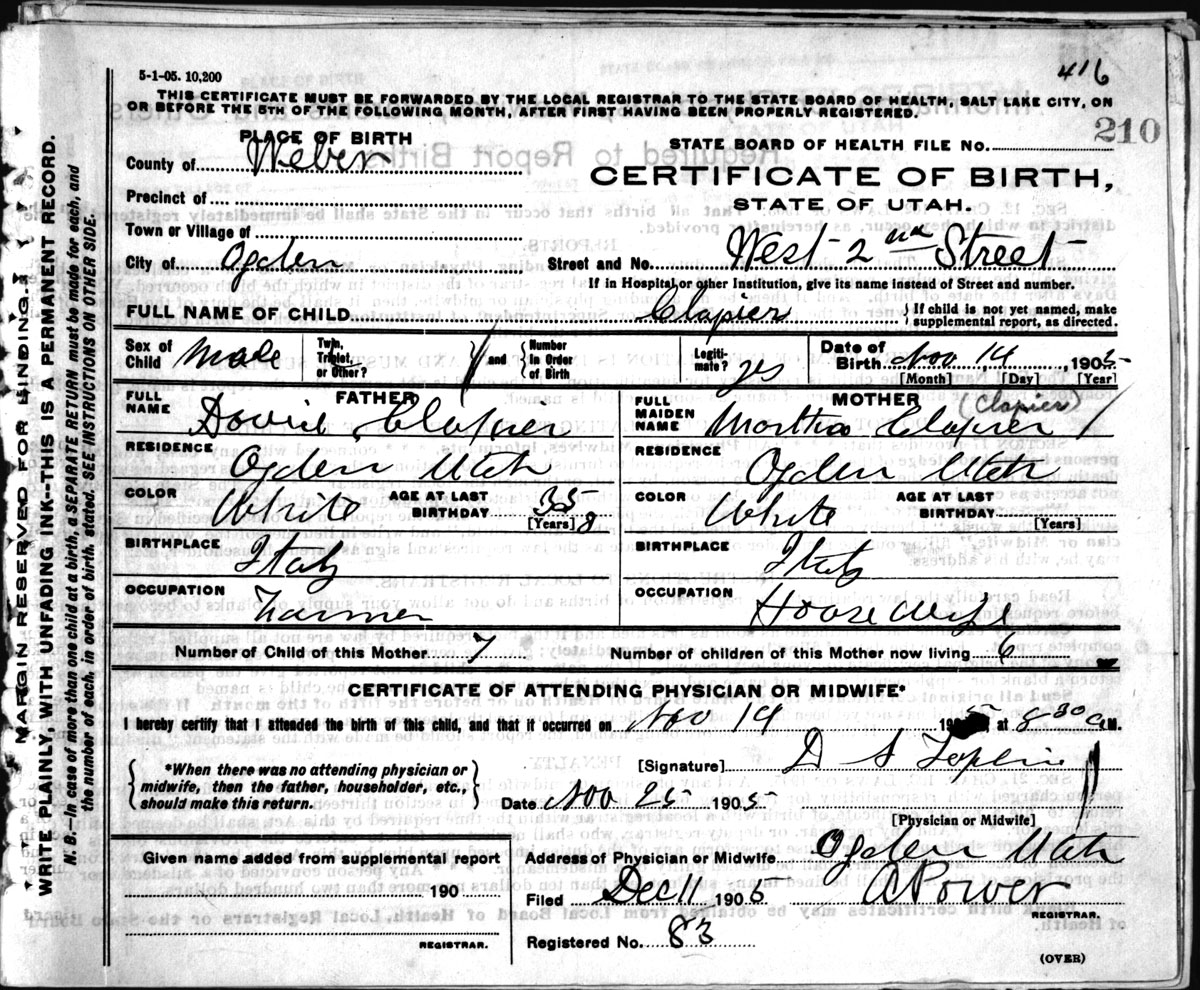 5-1-05. 10,200
416
THIS CERTIFICATE MUST BE FORWARDED BY THE LOCAL REGISTRAR TO THE STATE BOARD OF HEALTH, SALT LAKE CITY, ON
OR BEFORE THE 5TH OF THE FOLLOWING MONTH, AFTER FIRST HAVING BEEN PROPERLY REGISTERED.
210
PLACE OF BIRTH
STATE BOARD OF HEALTH FILE No.
County of Weber
CERTIFICATE OF BIRTH,
Precinct of
STATE OF UTAH.
Town or Village of
City of Ogden
Street and No. West 2nd Street
If in Hospital or other Institution, give its name instead of Street and number.
FULL NAME OF CHILD Clapier
If child is not yet named, make
supplemental report, as directed.
Sex of Child Male
Twin, Triplet, or Other?
and
Number in Order of Birth
Legiti-mate? yes
Date of Birth Nov 14, 1905
[Month] [Day] [Year]
FATHER
MOTHER (Clapier)
FULL NAME
FULL MAIDEN NAME
RESIDENCE Ogden Utah
RESIDENCE Ogden Utah
COLOR White
AGE AT LAST BIRTHDAY 35
[Years] 8
COLOR White
AGE AT LAST BIRTHDAY
[Years]
BIRTHPLACE Italy
BIRTHPLACE Italy
OCCUPATION Farmer
OCCUPATION Hoosewife
Number of Child of this Mother 7
Number of children of this Mother now living 6
CERTIFICATE OF ATTENDING PHYSICIAN OR MIDWIFE*
I hereby certify that I attended the birth of this child, and that it occurred on Nov 14 1905 at 8 30 a M.
*When there was no attending physician or
midwife, then the father, householder, etc.,
should make this return.
[Signature] D S
Date Nov 25 1905
[Physician or Midwife]
Given name added from supplemental report
190
REGISTRAR.
Address of Physician or Midwife Ogden Utah
Filed Dec 11 1905 C Power
REGISTRAR.
Registered No. 83
(OVER)
MARGIN RESERVED FOR BINDING.
WRITE PLAINLY, WITH UNFADING INK—THIS IS A PERMANENT RECORD.
N. B.—In case of more than one child at a birth, a SEPARATE RETURN must be made for each, and
the number of each, in order of birth, stated. SEE INSTRUCTIONS ON OTHER SIDE.